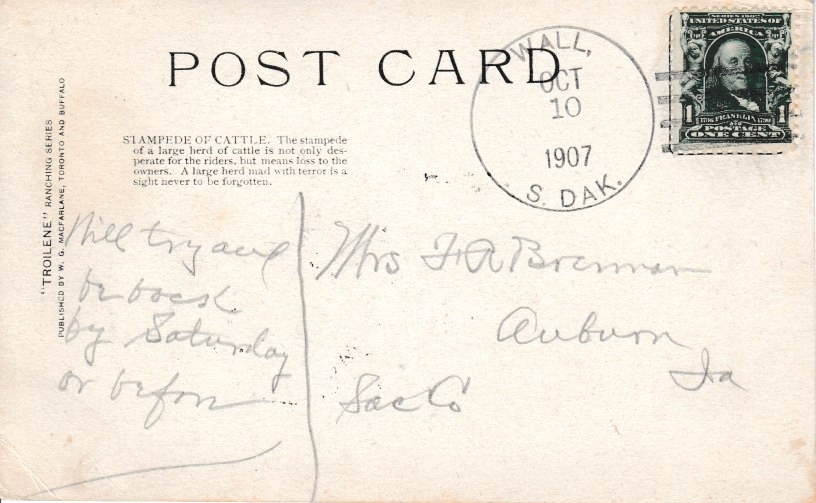 POST CARD
WALL,
OCT
10
1907
S. DAK.
SERIES 1902
UNITED STATES OF
AMERICA
1 1
1706 FRANKLIN 1790
AND
POSTAGE
ONE CENT
STAMPEDE OF CATTLE. The stampede
of a large herd of cattle is not only des-
perate for the riders, but means loss to the
owners. A large herd mad with terror is a
sight never to be forgotten.
"TROILENE" RANCHING SERIES
PUBLISHED BY W. G. MACFARLANE, TORONTO AND BUFFALO
Will try and
be back
by Saturday
or before
Mrs F A Brennan
Auburn
Ia
Sac Co